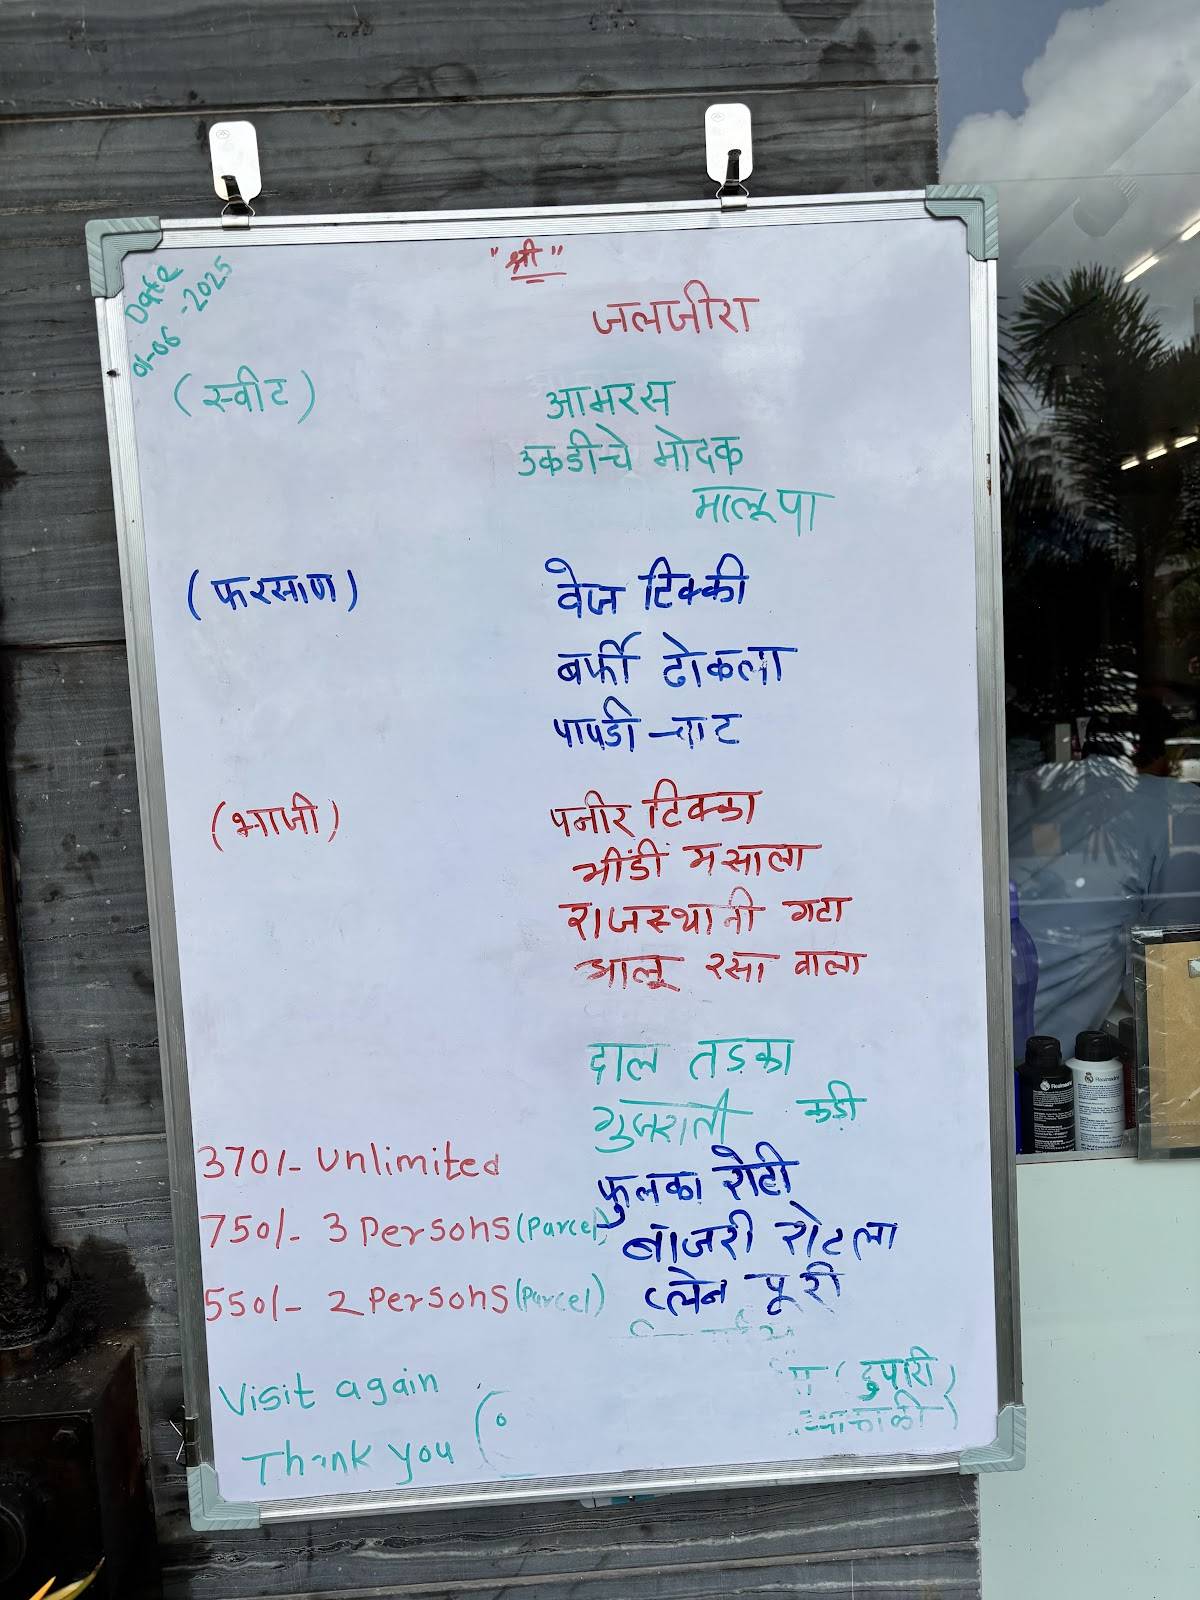 "श्री"
Date
01-06-2025
जलजीरा
(स्वीट) आमरस
उकडीचे मोदक
मालूपा
(फरसाण) वेज टिक्की
बर्फी ढोकला
पापडी चाट
(भाजी) पनीर टिक्का
भींडी मसाला
राजस्थानी गटा
आलू रसा वाला
दाल तडका
गुजराती कडी
370/- Unlimited फुलका रोटी
750/- 3 Persons (Parcel) बाजरी रोटला
550/- 2 Persons (Parcel) प्लेन पूरी
Visit again (दुपारी)
Thank you
Realmadrid
Realmadrid